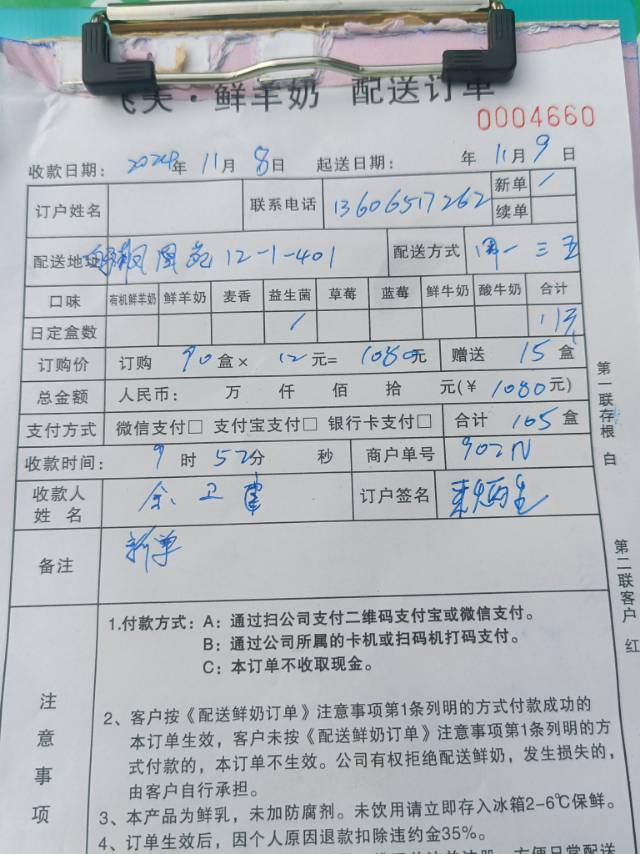 飞天·鲜羊奶 配送订单
0004660
收款日期: 2024年 11月 8日 起送日期: 年 11月 9日
订户姓名 联系电话 13606517262 新单 /
续单
配送地址 凰苑 12-1-401 配送方式 周一 三 五
口味 有机鲜羊奶 鲜羊奶 麦香 益生菌 草莓 蓝莓 鲜牛奶 酸牛奶 合计
日定盒数 /
订购价 订购 90 盒× 12 元= 1080元 赠送 15 盒
总金额 人民币: 万 仟 佰 拾 元(¥ 1080元)
支付方式 微信支付□ 支付宝支付□ 银行卡支付□ 合计 105 盒
收款时间: 9 时 52分 秒 商户单号 902N
收款人
姓 名 余卫军 订户签名
备注 新单
第一联存根 白
第二联客户 红
注意事项
1.付款方式: A: 通过扫公司支付二维码支付宝或微信支付。
B: 通过公司所属的卡机或扫码机打码支付。
C: 本订单不收取现金。
2、客户按《配送鲜奶订单》注意事项第1条列明的方式付款成功的
本订单生效，客户未按《配送鲜奶订单》注意事项第1条列明的方
式付款的，本订单不生效。公司有权拒绝配送鲜奶，发生损失的，
由客户自行承担。
3、本产品为鲜乳，未加防腐剂。未饮用请立即存入冰箱2-6℃保鲜。
4、订单生效后，因个人原因退款扣除违约金35%。